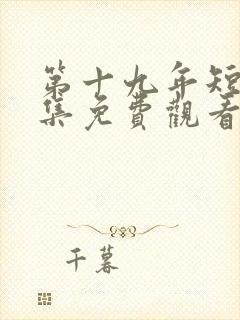 第十九年短
集免費觀看
千暮